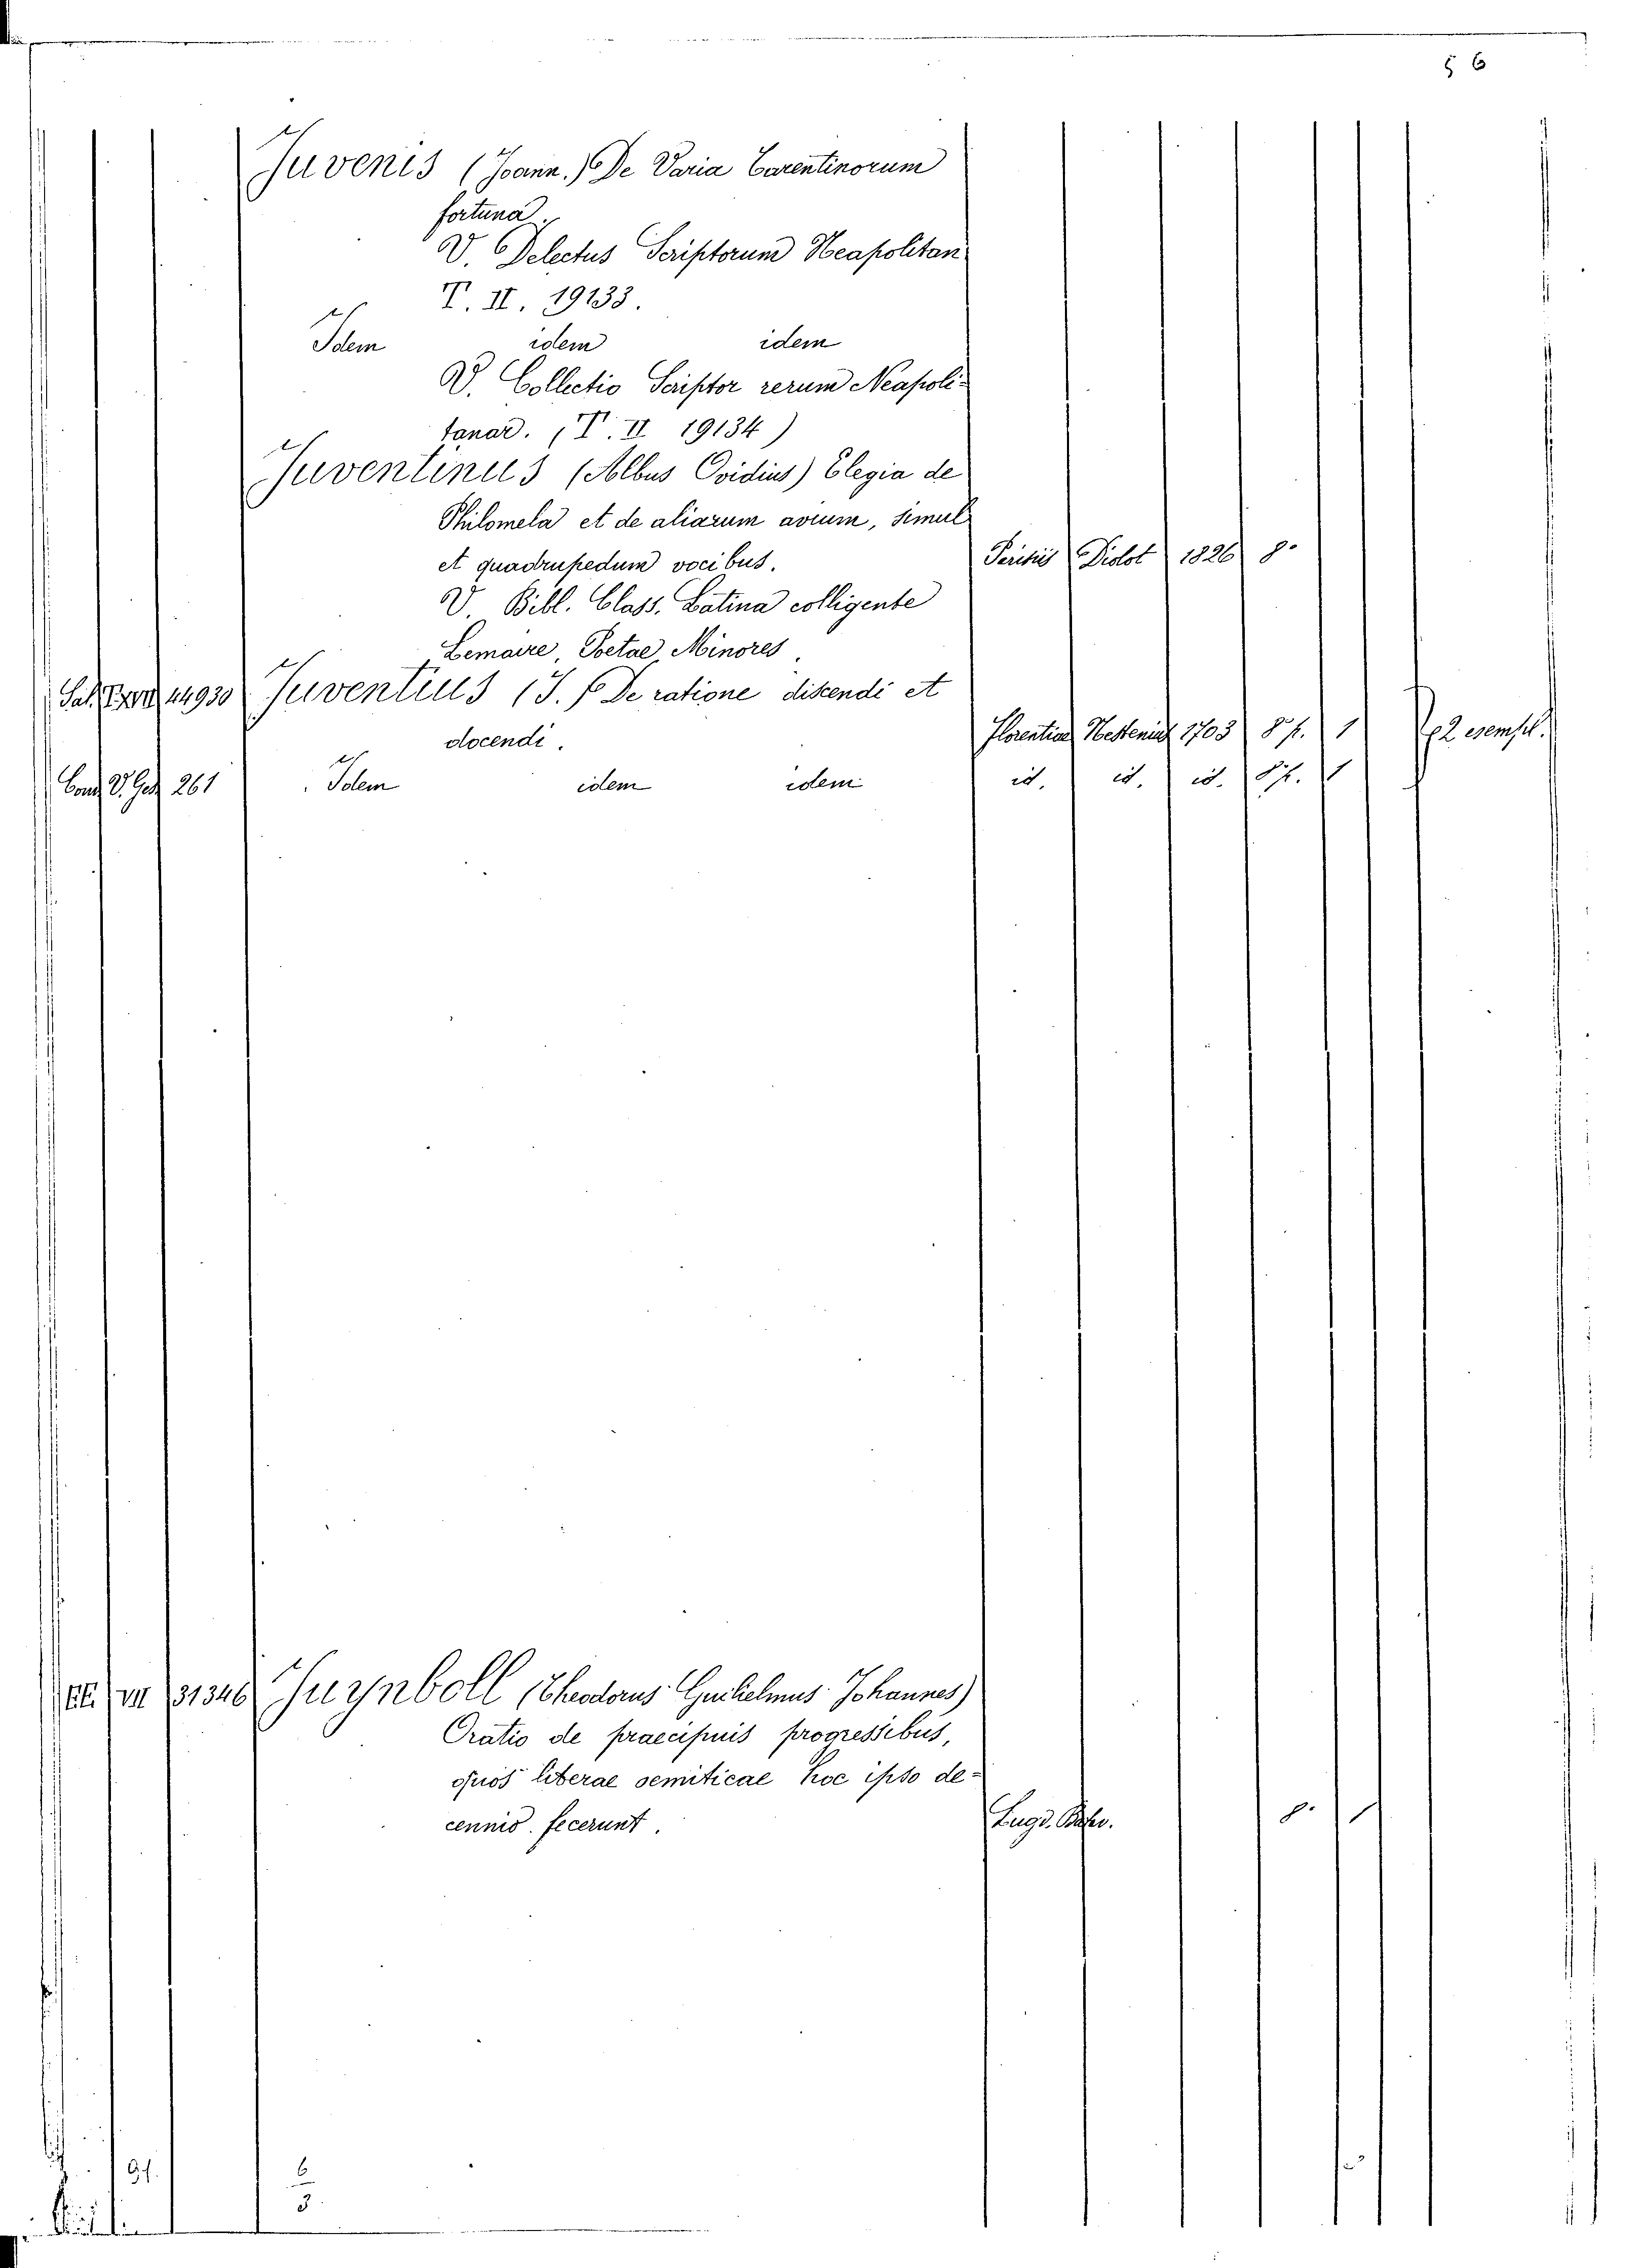 56
Juvenis (Joann.) De Varia Tarentinorum
fortuna.
V. Delectus Scriptorum Neapolitan
T. II. 19133.
Idem idem idem
V. Collectio Scriptor rerum Neapoli-
tanar. (T. II 19134)
Juventinus (Albus Ovidius) Elegia de
Philomela et de aliarum avium, simul
et quadrupedum vocibus. Parisiis Didot 1826 8.
V. Bibl. Class. Latina colligente
Lemaire, Poetae Minores.
Sal. 44930 Juventius (J.) De ratione discendi et
docendi. Florentiae Nestenius 1703 8 p. 1 2 esempl.
261 Idem idem idem id. id. id. 8 p. 1
VII 31346 Juynboll (Theodorus Guilielmus Johannes)
Oratio de praecipuis progressibus,
quos literae semiticae hoc ipso de-
cennio fecerunt. Lugd. Batav. 8. 1
6
3